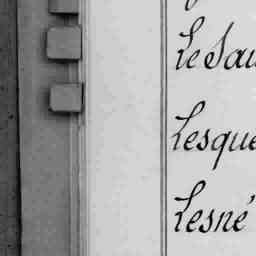 Le Sau
Lesque
Lesné